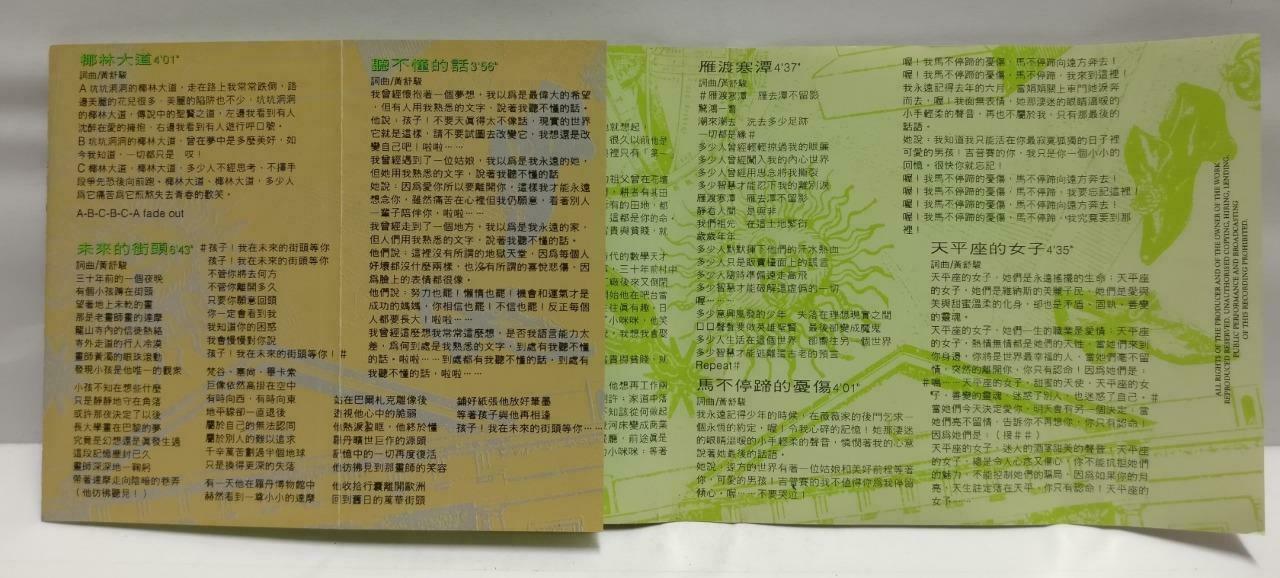 椰林大道4'01"
詞曲/黃舒駿
A 坑坑洞洞的椰林大道，走在路上我常常跌倒，路
邊美麗的花兒很多，美麗的陷阱也不少，坑坑洞洞
的椰林大道，傳說中的聖賢之道，左邊我看到有人
沈醉在愛的擁抱，右邊我看到有人遊行呼口號。
B 坑坑洞洞的椰林大道，曾在夢中是多麼美好，如
今我知道，一切都只是 哎！
C 椰林大道，椰林大道，多少人不經思考，不擇手
段爭先恐後向前跑。椰林大道、椰林大道，多少人
為它痛苦為它煎熬失去青春的歡笑。
A-B-C-B-C-A fade out
未來的街頭6'43"
詞曲/黃舒駿
三十年前的一個夜晚
有個小孩蹲在街頭
望著地上未乾的畫
那是老畫師畫的達摩
龍山寺內的信徒熱絡
寺外走道的行人冷漠
畫師黃濁的眼珠滾動
發現小孩是他唯一的觀衆
小孩不知在想些什麼
只是靜靜地守在角落
或許那夜決定了以後
長大學畫在巴黎的夢
究竟是幻想還是眞發生過
這段記憶塵封已久
畫師深深地一鞠躬
帶著達摩走向陰暗的巷弄
（他彷彿聽見！）
#孩子！我在未來的街頭等你
孩子！我在未來的街頭等你
不管你將去何方
不管你離開多久
只要你願意回頭
你一定會看到我
我知道你的困惑
我會慢慢對你說
孩子！我在未來的街頭等你！#
梵谷、塞尚、畢卡索
巨像依然高掛在空中
有時向西，有時向東
地平線卻一直退後
屬於自己的無法認同
屬於別人的難以追求
千辛萬苦劃過半個地球
只是換得更深的失落
有一天他在羅丹博物館中
赫然看到一尊小小的達摩
站在巴爾札克雕像後
透視他心中的脆弱
他熱淚盈眶，他終於懂
羅丹曠世巨作的源頭
記憶中的一切再度復活
他彷彿見到那畫師的笑容
他收拾行囊離開歐洲
回到舊日的萬華街頭
鋪好紙張他放好筆墨
等著孩子與他再相逢
孩子！我在未來的街頭等你……
聽不懂的話3'56"
詞曲/黃舒駿
我曾經懷抱著一個夢想，我以為是最偉大的希望
，但有人用我熟悉的文字，說著我聽不懂的話。
他說：孩子！不要天眞得太不像話，現實的世界
它就是這樣，請不要試圖去改變它，我想還是改
變自己吧！啦啦……
我曾經遇到了一位姑娘，我以為是我永遠的她，
但她用我熟悉的文字，說著我聽不懂的話
她說：因為愛你所以要離開你，這樣我才能永遠
想念你，雖然痛苦在心裡但我仍願意，看著別人
一輩子陪伴你，啦啦……
我曾經走到了一個地方，我以為是我永遠的家，
但人們用我熟悉的文字，說著我聽不懂的話。
他們說：這裡沒有所謂的地獄天堂，因為每個人
好壞都沒什麼兩樣，也沒有所謂的喜悅悲傷，因
為臉上的表情都很像。
他們說：努力也罷！懶惰也罷！機會和運氣才是
成功的媽媽，你相信也罷！不信也罷！反正每個
人都要長大！啦啦……
我曾經這麼想我常常這麼想，是否我語言能力太
差，為何到處是我熟悉的文字，到處有我聽不懂
的話，啦啦……到處都有我聽不懂的話，到處有
我聽不懂的話，啦啦……
雁渡寒潭4'37"
詞曲/黃舒駿
#雁渡寒潭 雁去潭不留影
驚鴻一瞥
潮來潮去 洗去多少足跡
一切都是緣#
多少人曾經輕輕掠過我的眼簾
多少人曾經闖入我的內心世界
多少人曾經用思念將我撕裂
多少智慧才能忍下我的離別淚
雁渡寒潭 雁去潭不留影
靜看人間 是與非
我們祖先 在這土地繁衍
歲歲年年
多少人默默揮下他們的汗水熱血
多少人只是販賣檯面上的謊言
多少人隨時準備遠走高飛
多少智慧才能破解這虛偽的一切
喔……
多少意興風發的少年 失落在理想現實之間
口口聲聲要做英雄聖賢 最後卻變成魔鬼
多少人生活在這個世界 卻嚮往另一個世界
多少智慧才能逃離這古老的預言
Repeat#
馬不停蹄的憂傷4'01"
詞曲/黃舒駿
我永遠記得少年的時候，在薇薇家的後門乞求一
個永恆的約定，喔！令我心碎的記憶！她那淒迷
的眼睛溫暖的小手輕柔的聲音，憐憫著我的心意
說著她最後的話語。
她說：遠方的世界有著一位姑娘和美好前程等著
你，可愛的男孩！吉普賽的我不值得你為我停留
傾心，喔……不要哭泣！
喔！我馬不停蹄的憂傷，馬不停蹄向遠方奔去！
喔！我馬不停蹄的憂傷，馬不停蹄，我來到這裡！
我永遠記得去年的六月，當娟娟關上車門她淚奔
而去，喔！我面無表情，她那淒迷的眼睛溫暖的
小手輕柔的聲音，再也不屬於我，只有那最後的
話語。
她說：我知道我只能活在你最寂寞孤獨的日子裡
可愛的男孩！吉普賽的你，我只是你一個小小的
回憶，很快你就忘記！
喔！我馬不停蹄的憂傷，馬不停蹄向遠方奔去！
喔！我馬不停蹄的憂傷，馬不停蹄，我要忘記這裡！
喔！我馬不停蹄的憂傷，馬不停蹄向遠方奔去！
喔！我馬不停蹄的憂傷，馬不停蹄，我究竟要到那
裡！
天平座的女子4'35"
詞曲/黃舒駿
天平座的女子，她們是永遠搖擺的生命；天平座
的女子，她們是維納斯的美麗子民，她們是愛與
美與甜蜜溫柔的化身，卻也是矛盾、固執、善變
的靈魂。
天平座的女子，她們一生的職業是愛情；天平座
的女子，熱情無情都是她們的天性，當她們來到
你身邊，你將是世界最幸福的人，當她們毫不留
情，突然的離開你，你只有認命！因為她們是：
#嗚……天平座的女子，甜蜜的天使，天平座的女
子，善變的靈魂，迷惑了別人，也迷惑了自己。#
當她們今天決定愛你，明天會有另一個決定，當
她們亮不留情，告訴你不再想你，你只有認命！
因為她們是：（接##）
天平座的女子，迷人的酒窩甜美的聲音，天平座
的女子，總是令人心疼又傷心，你不能抗拒她們
的魅力，不能控制她們的騙局，因為如果你的月
亮，天生註定落在天平，你只有認命！天平座的
女子……
ALL RIGHTS OF THE PRODUCER AND OF THE OWNER OF THE WORK
REPRODUCED RESERVED. UNAUTHORISED COPYING, HIRING, LENDING,
PUBLIC PERFORMANCE AND BROADCASTING
OF THIS RECORDING PROHIBITED.